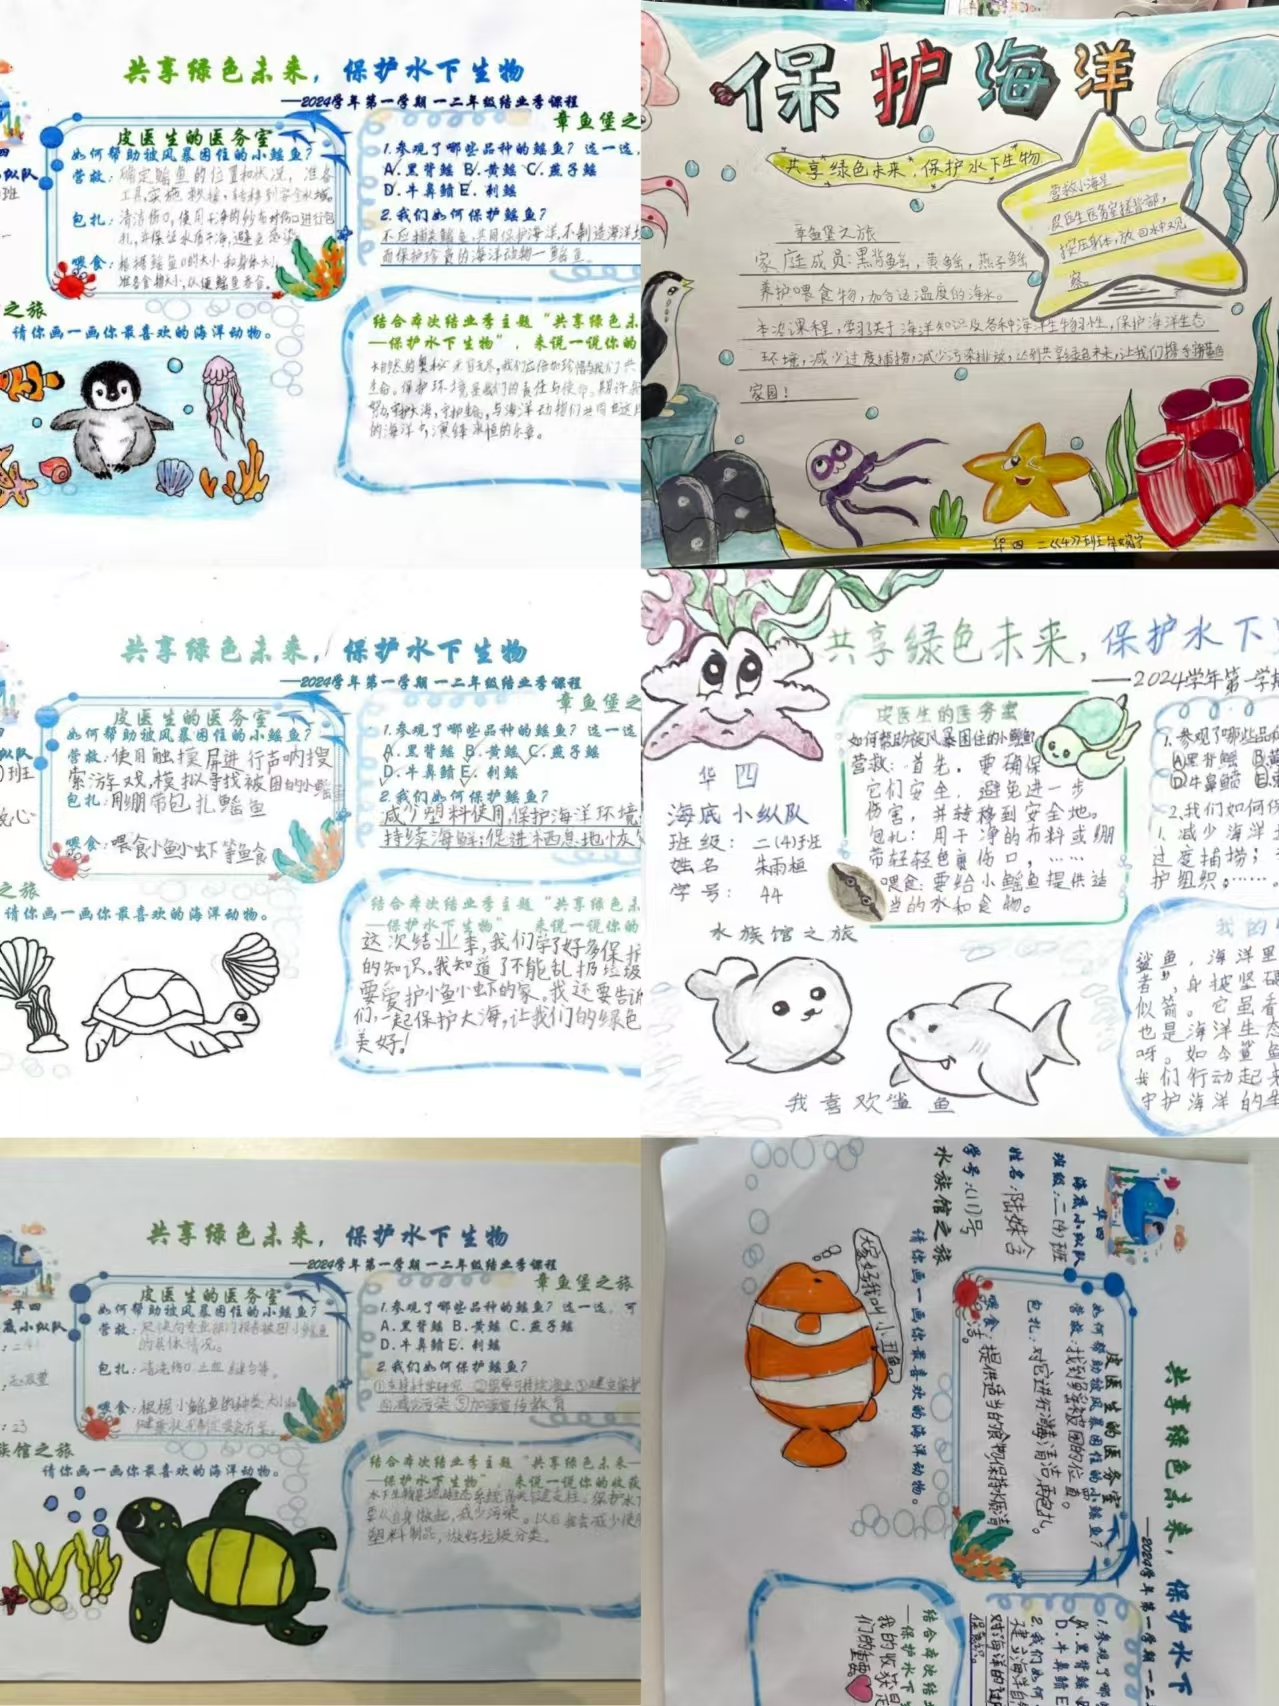 共享绿色未来，保护水下生物
——2024学年第一学期一二年级结业季课程
皮医生的医务室
如何帮助被风暴困住的小鳐鱼？
营救：确定鳐鱼的位置和状况，准备
工具，实施救援，转移到安全水域。
包扎：清洁伤口，使用干净的纱布对伤口进行包
扎，并保证水质干净，避免感染
喂食：根据鳐鱼口的大小和身体大小
准备食物大小，以便鳐鱼吞食。
章鱼堡之
1.参观了哪些品种的鳐鱼？选一选，
A.黑背鳐 B.黄鳐 C.燕子鳐
D.牛鼻鲼 E.利鳐
2.我们如何保护鳐鱼？
不应捕杀鳐鱼，共同保护海洋，不制造海洋
而保护珍贵的海洋动物—鳐鱼。
之旅
请你画一画你最喜欢的海洋动物。
结合本次结业季主题“共享绿色未
—保护水下生物”，来说一说你的
生命。保护环境是我们的责任与使命。
的海洋与演绎永恒的乐章。
保护海洋
共享绿色未来，保护水下生物
营救小海星
皮医生医务室揉背部，
按压躯体，放回水中观
察。
章鱼堡之旅
家庭成员：黑背鳐，黄鳐，燕子鳐
养护喂食物，加合适温度的海水。
本次课程，学习关于海洋知识及各种海洋生物习性，保护海洋生态
环境，减少过度捕捞，减少污染排放，达到共享绿色未来，让我们携手
家园！
华四 二（4）班
共享绿色未来，保护水下生物
——2024学年第一学期一二年级结业季课程
皮医生的医务室
如何帮助被风暴困住的小鳐鱼？
营救：使用触摸屏进行声呐搜
索游戏，模拟寻找被困的小鳐鱼
包扎：用绷带包扎鳐鱼
喂食：喂食小鱼小虾等鱼食
章鱼堡之
1.参观了哪些品种的鳐鱼？选一选
A.黑背鳐 B.黄鳐 C.燕子鳐
D.牛鼻鲼 E.利鳐
2.我们如何保护鳐鱼？
减少塑料使用，保护海洋环境
持续海鲜；促进栖息地恢
之旅
请你画一画你最喜欢的海洋动物。
结合本次结业季主题“共享绿色
—保护水下生物” 来说一说你的
这次结业季，我们学了好多保护
的知识。我知道了不能乱扔垃圾
要爱护小鱼小虾的家。我还要告诉
们，一起保护大海，让我们的绿色
美好！
共享绿色未来，保护水下
——2024学年第一学期
华四
海底小纵队
班级：二（4）班
姓名 朱雨桓
学号：44
皮医生的医务室
如何帮助被风暴困住的小鳐鱼
营救：首先，要确保
它们安全，避免进一步
伤害，并转移到安全地。
包扎：用干净的布料或绷
带轻轻包裹伤口，……
喂食：要给小鳐鱼提供适
当的水和食物。
1.参观了哪些品
A黑背鳐 B黄
D牛鼻鲼
2.我们如何保
1.减少海洋
过度捕捞；
护组织。……
水族馆之旅
我喜欢鲨鱼
鲨鱼，海洋里
者”，身披坚硬
似箭。它虽看
也是海洋生态
呀。如今鲨鱼
我们行动起来
守护海洋的生
共享绿色未来，保护水下生物
——2024学年第一学期一二年级结业季课程
华四
底小纵队
：23
皮医生的医务室
如何帮助被风暴困住的小鳐鱼？
营救：尽快向专业部门报告被困小鳐鱼
的具体情况。
包扎：清洗伤口
喂食：根据小鳐鱼的种类大小和
健康状况制定喂食方案。
章鱼堡之旅
1.参观了哪些品种的鳐鱼？选一选，可
A.黑背鳐 B.黄鳐 C.燕子鳐
D.牛鼻鲼 E.利鳐
2.我们如何保护鳐鱼？
①支持科学研究
④减少污染 ⑤加强宣传教育
族馆之旅
请你画一画你最喜欢的海洋动物。
结合本次结业季主题“共享绿色未来—
—保护水下生物” 来说一说你的收获
要从自身做起，减少污染。以后我会减少使
塑料制品，做好垃圾分类。
共享绿色未来，保护水下
——2024学年第一学期一二
华四
海底小纵队
班级：二（4）班
姓名：陆姝含
学号：(11)号
皮医生的医务室
如何帮助被风暴困住的小鳐鱼？
营救：找到鳐鱼被困的位置。
包扎：对它进行消毒清洁，再包扎。
喂食：提供适当的食物，保持水质清
洁。
水族馆之旅
请你画一画你最喜欢的海洋动物。
大家好我叫小丑鱼。
1.参观了哪
A.黑背鳐
D.牛鼻鲼
2.我们如何
建立海洋自
结合本次结业
—保护水下生
我的收获是